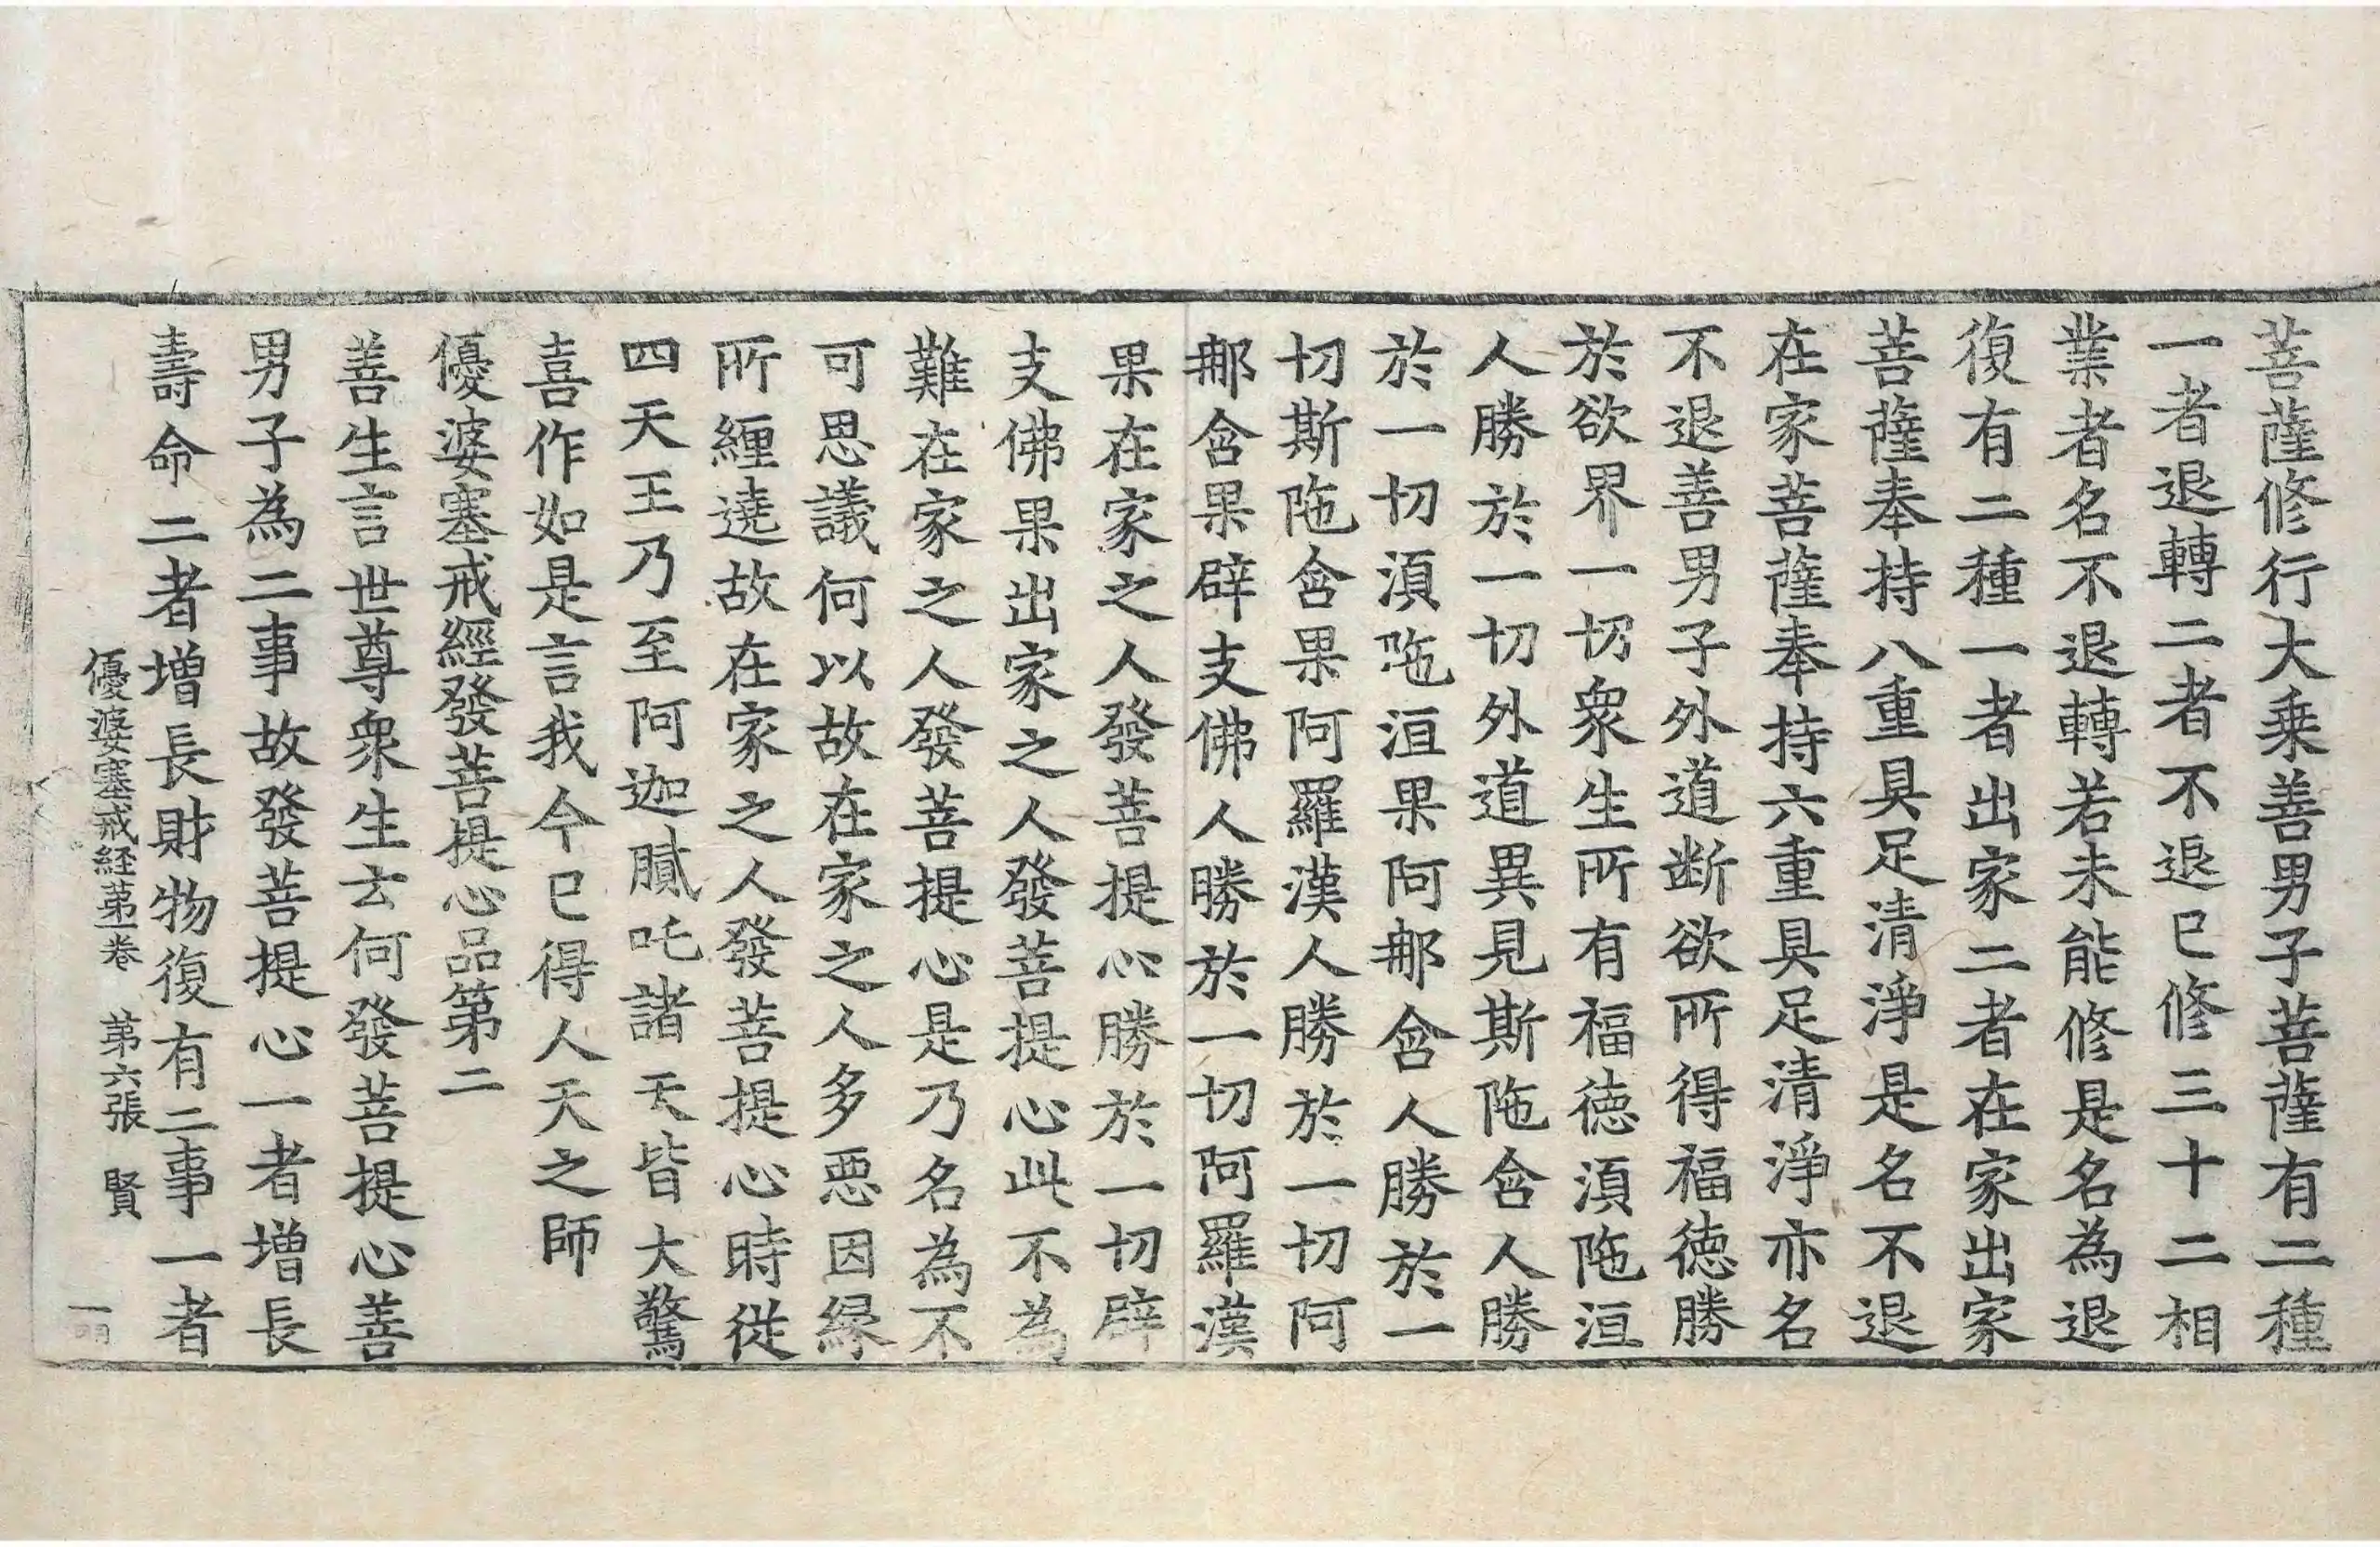 菩薩修行大乗善男子菩薩有二種
一者退轉二者不退已修三十二相
業者名不退轉若未能修是名為退
復有二種一者出家二者在家出家
菩薩奉持八重具足清淨是名不退
在家菩薩奉持六重具足清淨亦名
不退善男子外道断欲所得福徳勝
於欲界一切衆生所有福徳湏陁洹
人勝於一切外道異見斯陁含人勝
於一切湏陁洹果阿那含人勝於一
切斯陁含果阿羅漢人勝於一切阿
那含果辟支佛人勝於一切阿羅漢
果在家之人發菩提心勝於一切辟
支佛果出家之人發菩提心此不為
難在家之人發菩提心是乃名為不
可思議何以故在家之人多惡因縁
所纏遶故在家之人發菩提心時從
四天王乃至阿迦膩吒諸天皆大驚
喜作如是言我今已得人天之師
優婆塞戒經發菩提心品第二
善生言世尊衆生云何發菩提心善
男子為二事故發菩提心一者増長
壽命二者増長財物復有二事一者
優婆塞戒経第一卷 第六張 賢
一明